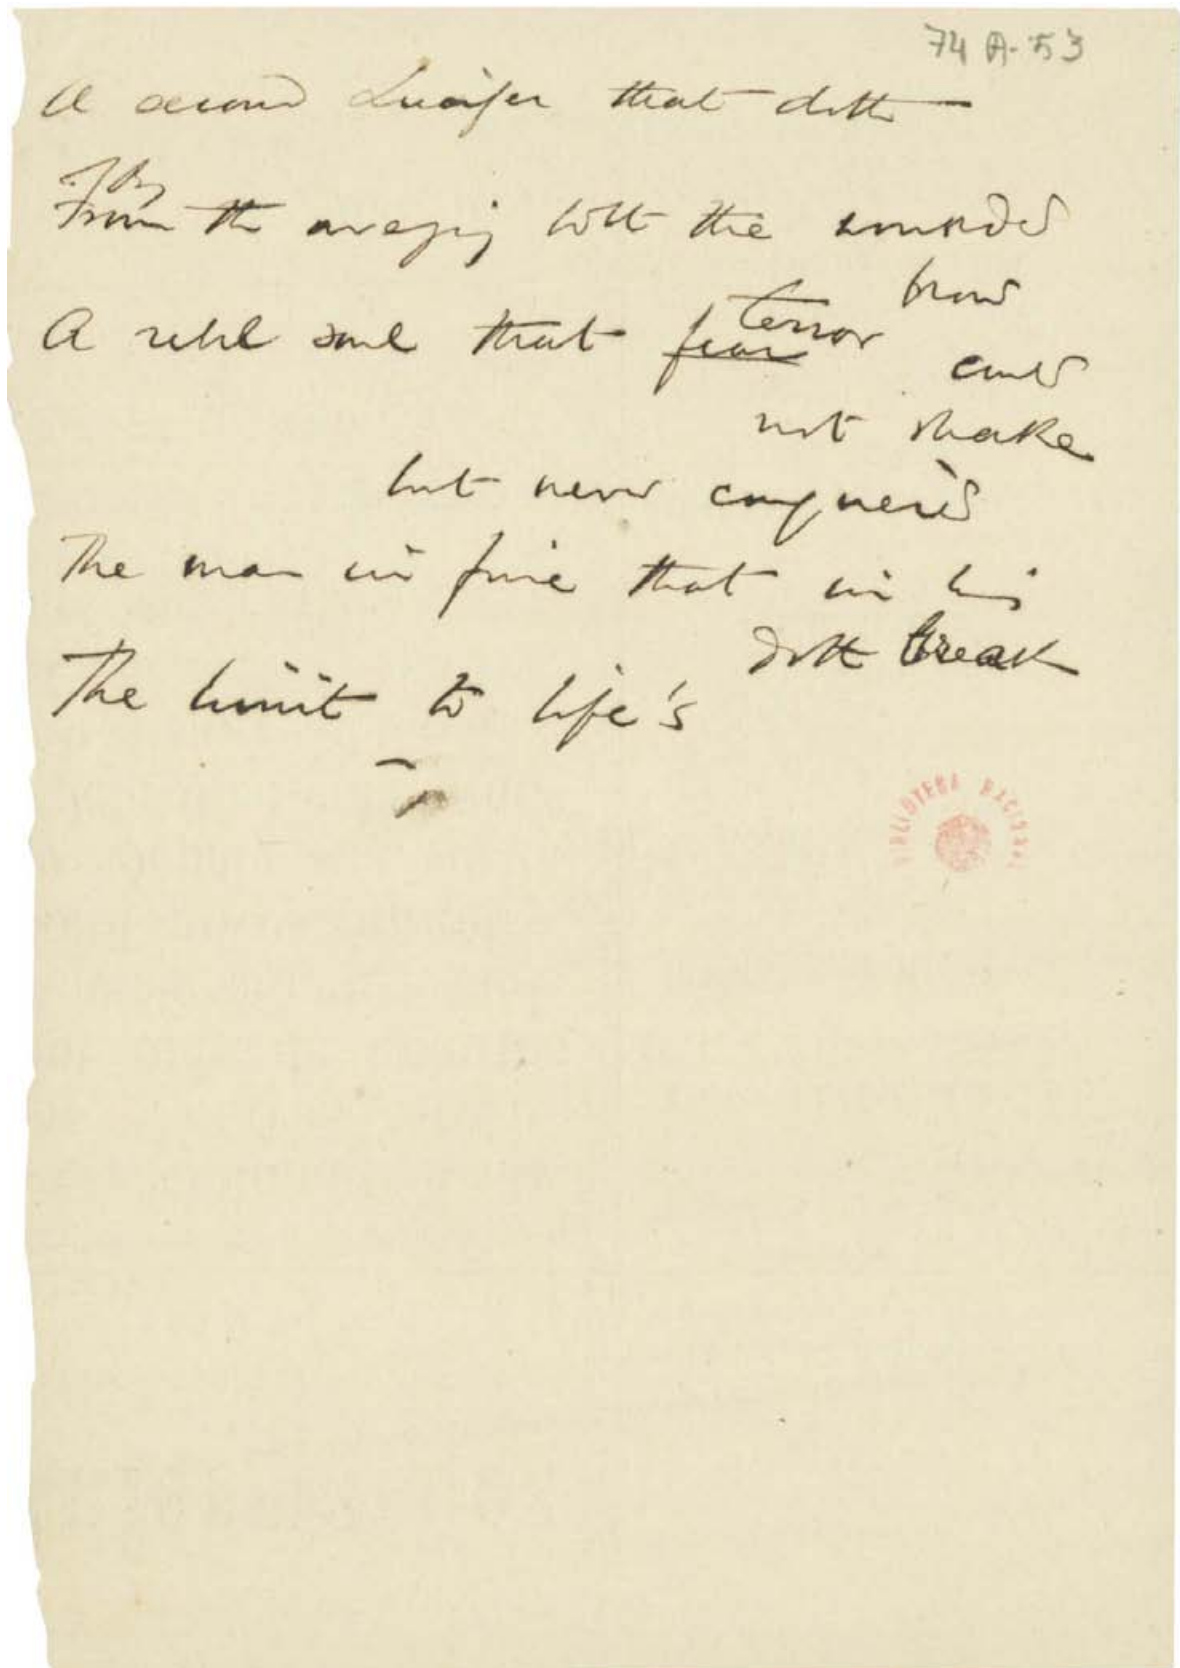 74 A-53
A second Lucifer that doth —
By
From the avenging bolt the wounded
brow
A rebel soul that fear terror could
not shake
but never conquer'd
The man in fine that in his
doth break
The limit to life's
BIBLIOTECA NACIONAL